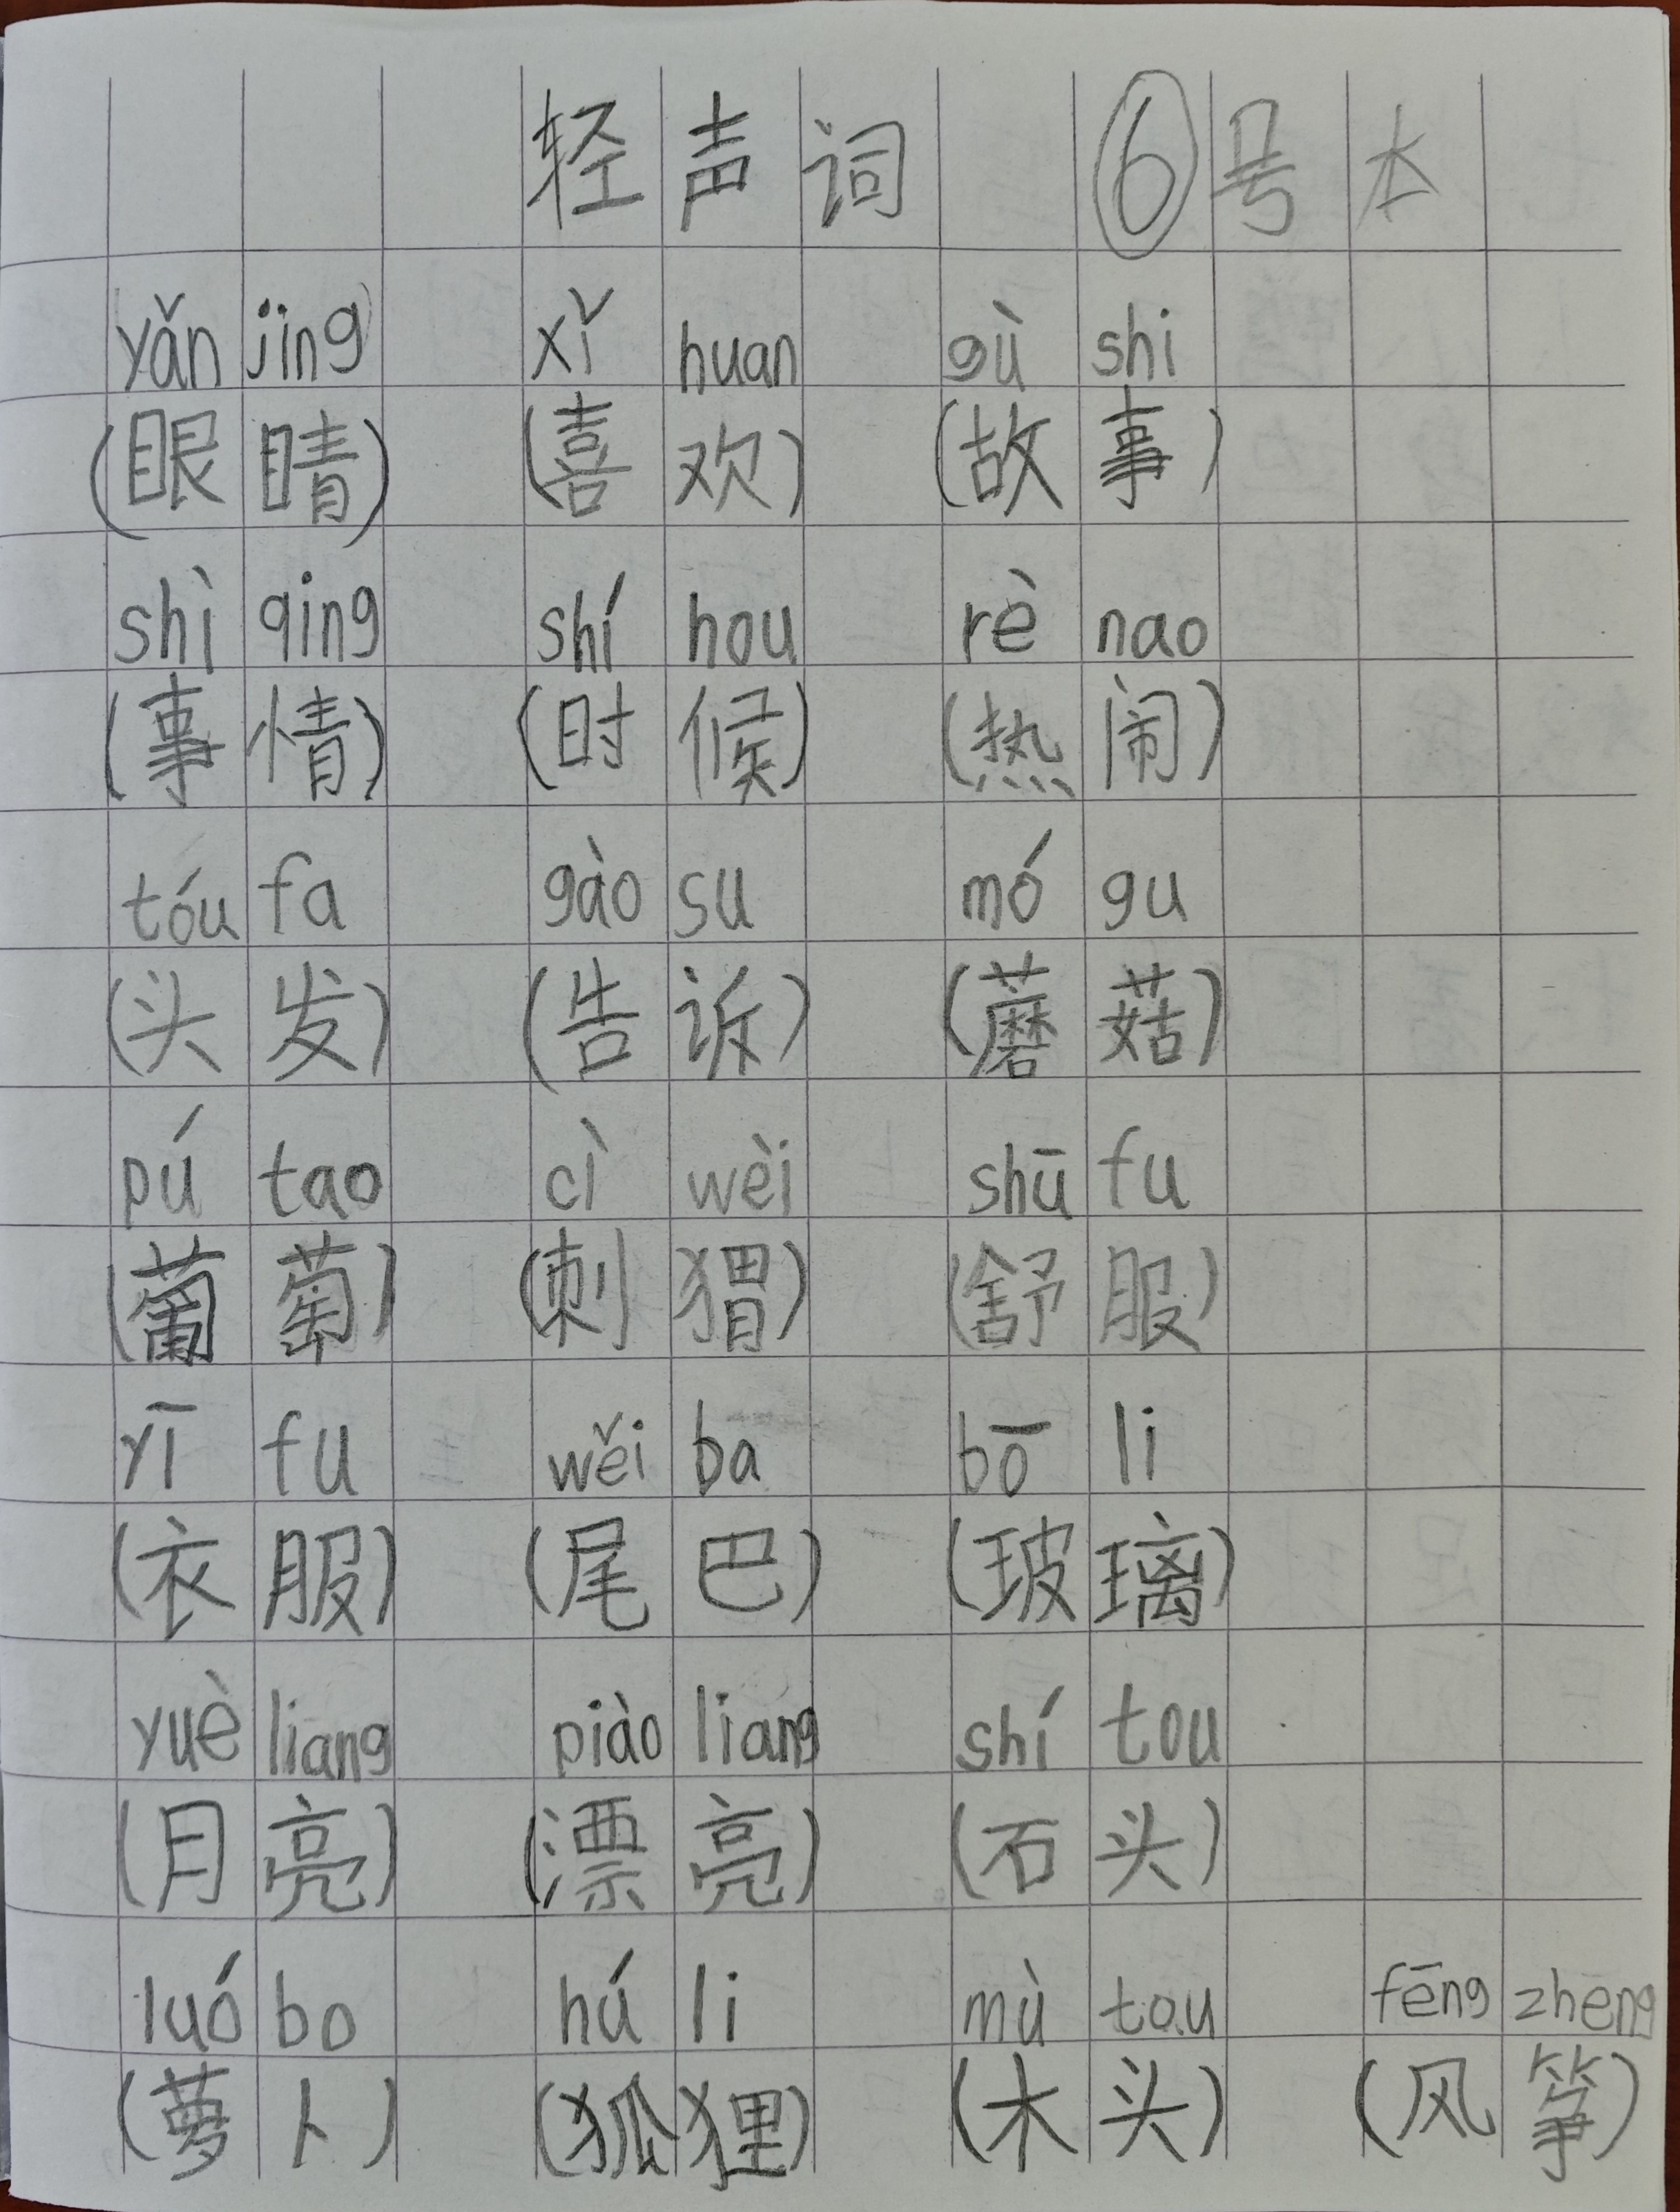 轻声词 ⑥号本
yǎn jing xǐ huan gù shi
(眼睛) (喜欢) (故事)
shì qing shí hou rè nao
(事情) (时候) (热闹)
tóu fa gào su mó gu
(头发) (告诉) (蘑菇)
pú tao cì wèi shū fu
(葡萄) (刺猬) (舒服)
yī fu wěi ba bō li
(衣服) (尾巴) (玻璃)
yuè liang piào liang shí tou
(月亮) (漂亮) (石头)
luó bo hú li mù tou fēng zheng
(萝卜) (狐狸) (木头) (风筝)